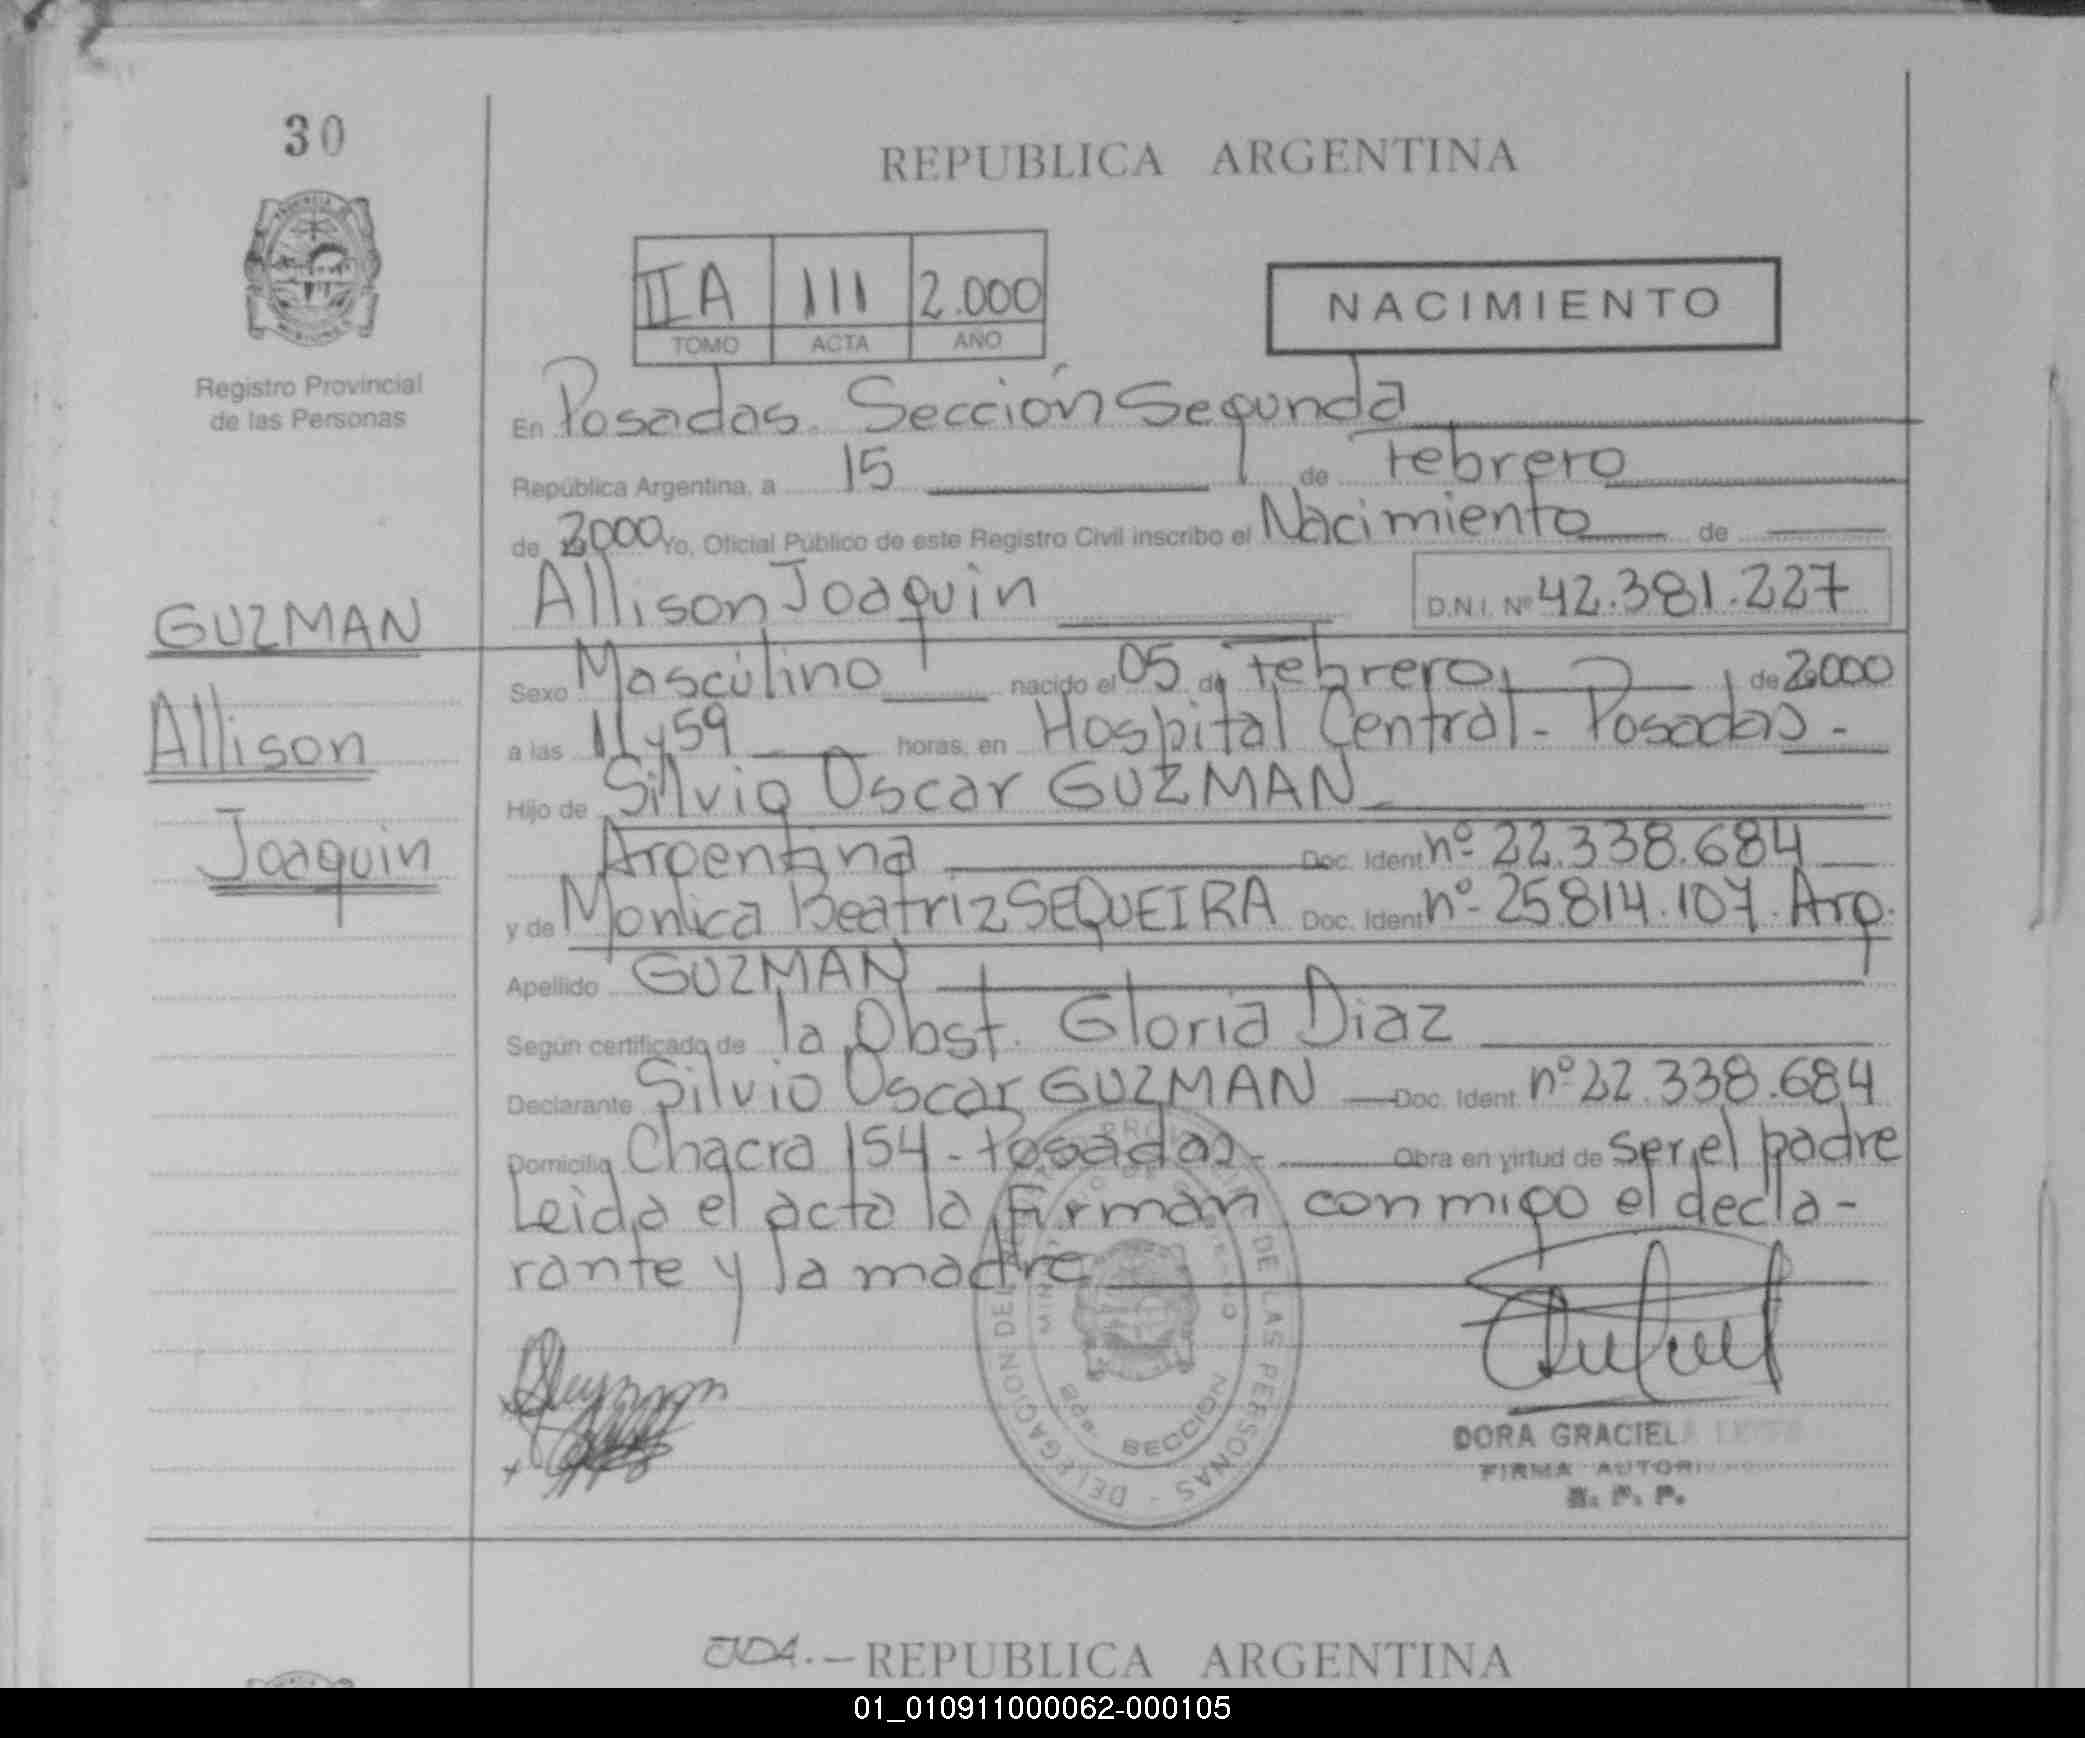 30
REPUBLICA ARGENTINA
IIA 111 2.000
TOMO ACTA AÑO
NACIMIENTO
Registro Provincial
de las Personas
En Posadas. Sección Segunda
República Argentina, a 15 de Febrero
de 2000 Yo, Oficial Público de este Registro Civil inscribo el Nacimiento de
Allison Joaquin D.N.I. Nº 42.381.227
GUZMAN
Allison
Joaquin
Sexo Masculino nacido el 05 de Febrero de 2000
a las 11 y 59 horas, en Hospital Central - Posadas -
Hijo de Silvio Oscar GUZMAN
Argentina Doc. Ident nº 22.338.684
y de Monica Beatriz SEQUEIRA Doc. Ident nº 25.814.107. Arg.
Apellido GUZMAN
Según certificado de la Obst. Gloria Diaz
Declarante Silvio Oscar GUZMAN Doc. Ident nº 22.338.684
Domicilio Chacra 154 - Posadas - Obra en virtud de ser el padre
Leida el acta la firman conmigo el decla-
rante y la madre
DELEGACION DEL DE LAS PERSONAS
2da. SECCION
DORA GRACIELA
FIRMA
R. P. P.
REPUBLICA ARGENTINA
01_010911000062-000105